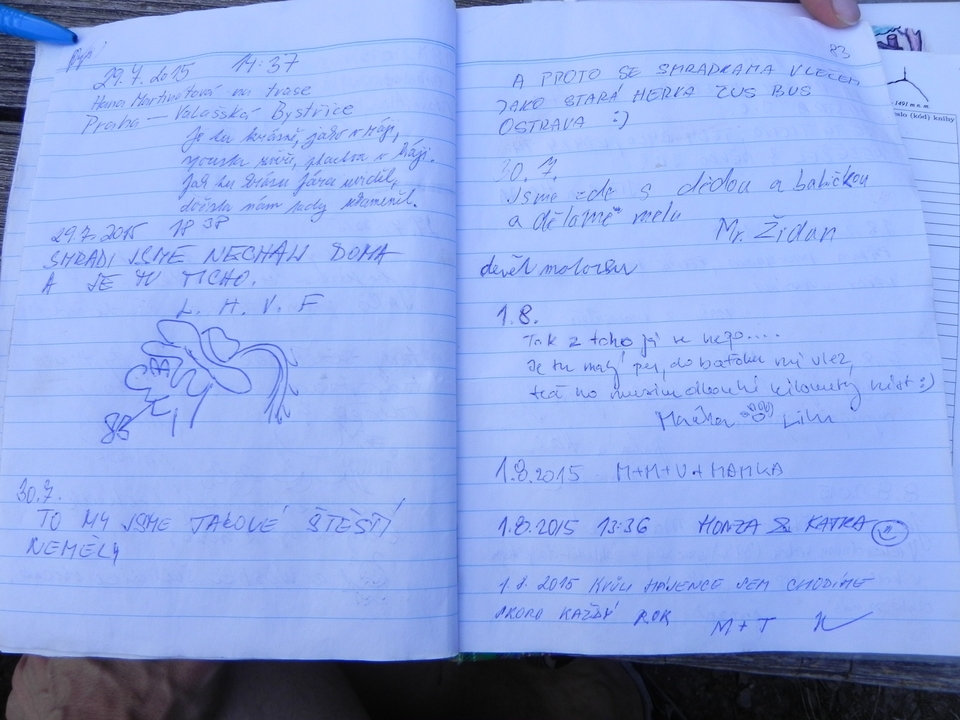 29.7.2015 14:37
Hana Martinetová na trase
Praha – Valašská Bystřice
Je tu krásně, jako v máji,
v ráji.
Jak tu krásu Jára viděl,
nám tady
29.7.2015 18 38
SMRADI JSME NECHALI DOMA
A JE TU TICHO.
L. H. V. F
30.7.
TO MY JSME TAKOVÉ ŠTĚSTÍ
NEMĚLY
83
A PROTO SE SMRADKAMA VLEČEM
JAKO STARÁ HERKA ZUS BUS
OSTRAVA :)
30.7.
Jsme zde s dědou a babičkou
a děláme melu
Mr. Židan
1.8.
Tak z toho já ....
Je tu malý pes, do batohu vlez,
teď ho musím dlouhé kilometry nést :)
1.8.2015 M+M+V+MAMKA
1.8.2015 13:36 HONZA & KATKA
1.8. 2015 KVŮLI HÁJENCE SEM CHODÍME
SKORO KAŽDÝ ROK
M + T
1491 m n. m.
(kód) knihy